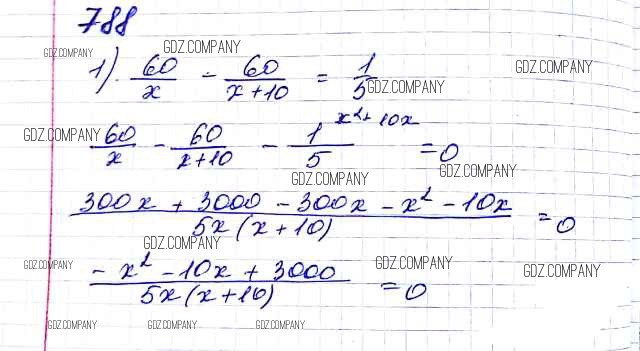 788
GDZ.COMPANY GDZ.COMPANY
1). 60/x - 60/(x+10) = 1/5 GDZ.COMPANY
GDZ.COMPANY
GDZ.COMPANY 60/x - 60/(x+10) - 1/5 x²+10x = 0
GDZ.COMPANY GDZ.COMPANY
300x + 3000 - 300x - x² - 10x / 5x(x+10) = 0
GDZ.COMPANY
GDZ.COMPANY GDZ.COMPANY GDZ.COMPANY
-x² - 10x + 3000 / 5x(x+10) = 0
GDZ.COMPANY GDZ.COMPANY GDZ.COMPANY